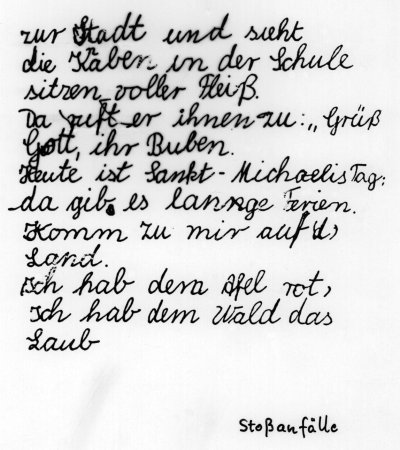 zur Stadt und sieht
die Knaben in der Schule
sitzen voller Fleiß.
Da ruft er ihnen zu: „Grüß
Gott, ihr Buben.
Heute ist Sankt-Michaelis Tag;
da gib. es lannge Ferien.
Komm zu mir auf'd,
Land.
Ich hab dem Afel rot,
Ich hab dem Wald das
Laub
Stoßanfälle